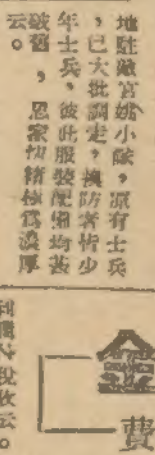 地駐敵官姚小酴，原有士兵
，已大批調走，換防者皆少
年士兵，彼此服裝配備均甚
破舊，思家情緒極為濃厚
云。
金
費
利國分稅收云。